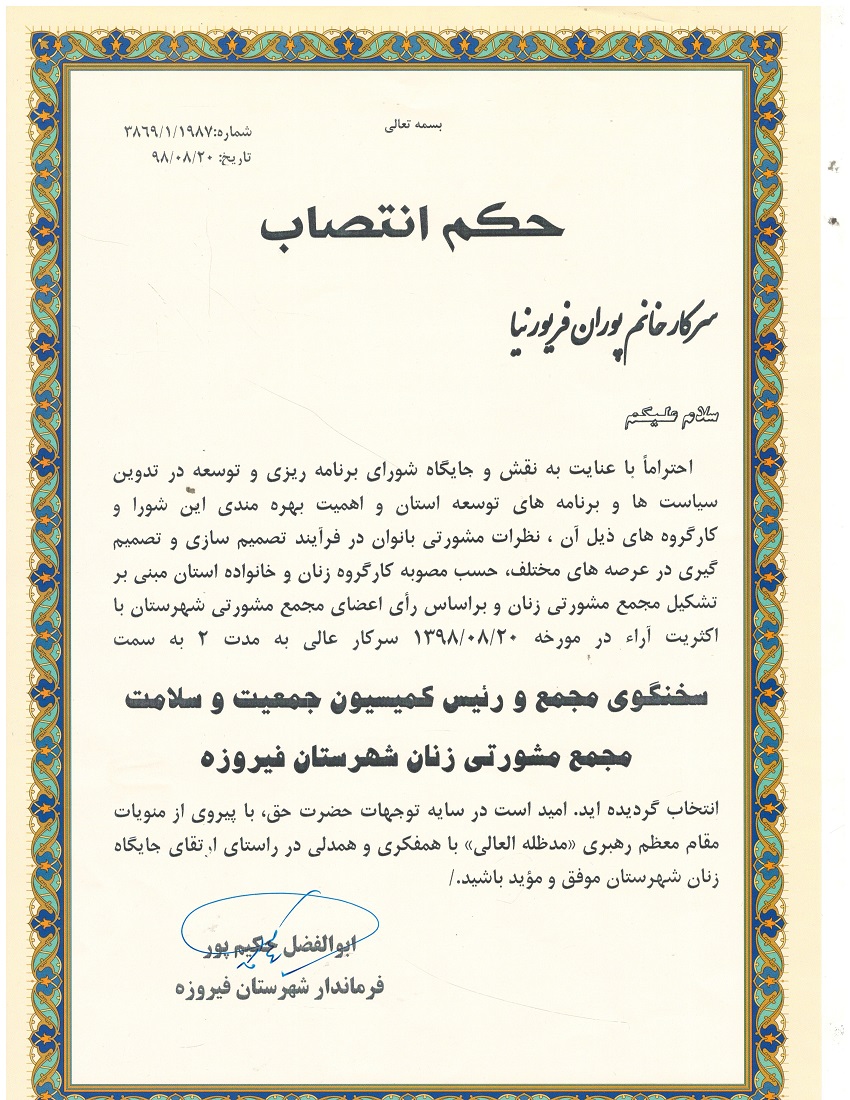 بسمه تعالی
شماره:۳۸۶۹/۱/۱۹۸۷
تاریخ: ۹۸/۰۸/۲۰
حکم انتصاب
سرکار خانم پوران فریورنیا
سلام علیکم
احتراماً با عنایت به نقش و جایگاه شورای برنامه ریزی و توسعه در تدوین
سیاست ها و برنامه های توسعه استان و اهمیت بهره مندی این شورا و
کارگروه های ذیل آن ، نظرات مشورتی بانوان در فرآیند تصمیم سازی و تصمیم
گیری در عرصه های مختلف، حسب مصوبه کارگروه زنان و خانواده استان مبنی بر
تشکیل مجمع مشورتی زنان و براساس رأی اعضای مجمع مشورتی شهرستان با
اکثریت آراء در مورخه ۱۳۹۸/۰۸/۲۰ سرکار عالی به مدت ۲ به سمت
سخنگوی مجمع و رئیس کمیسیون جمعیت و سلامت
مجمع مشورتی زنان شهرستان فیروزه
انتخاب گردیده اید. امید است در سایه توجهات حضرت حق، با پیروی از منویات
مقام معظم رهبری «مدظله العالی» با همفکری و همدلی در راستای ارتقای جایگاه
زنان شهرستان موفق و مؤید باشید./
ابوالفضل حکیم پور
فرماندار شهرستان فیروزه